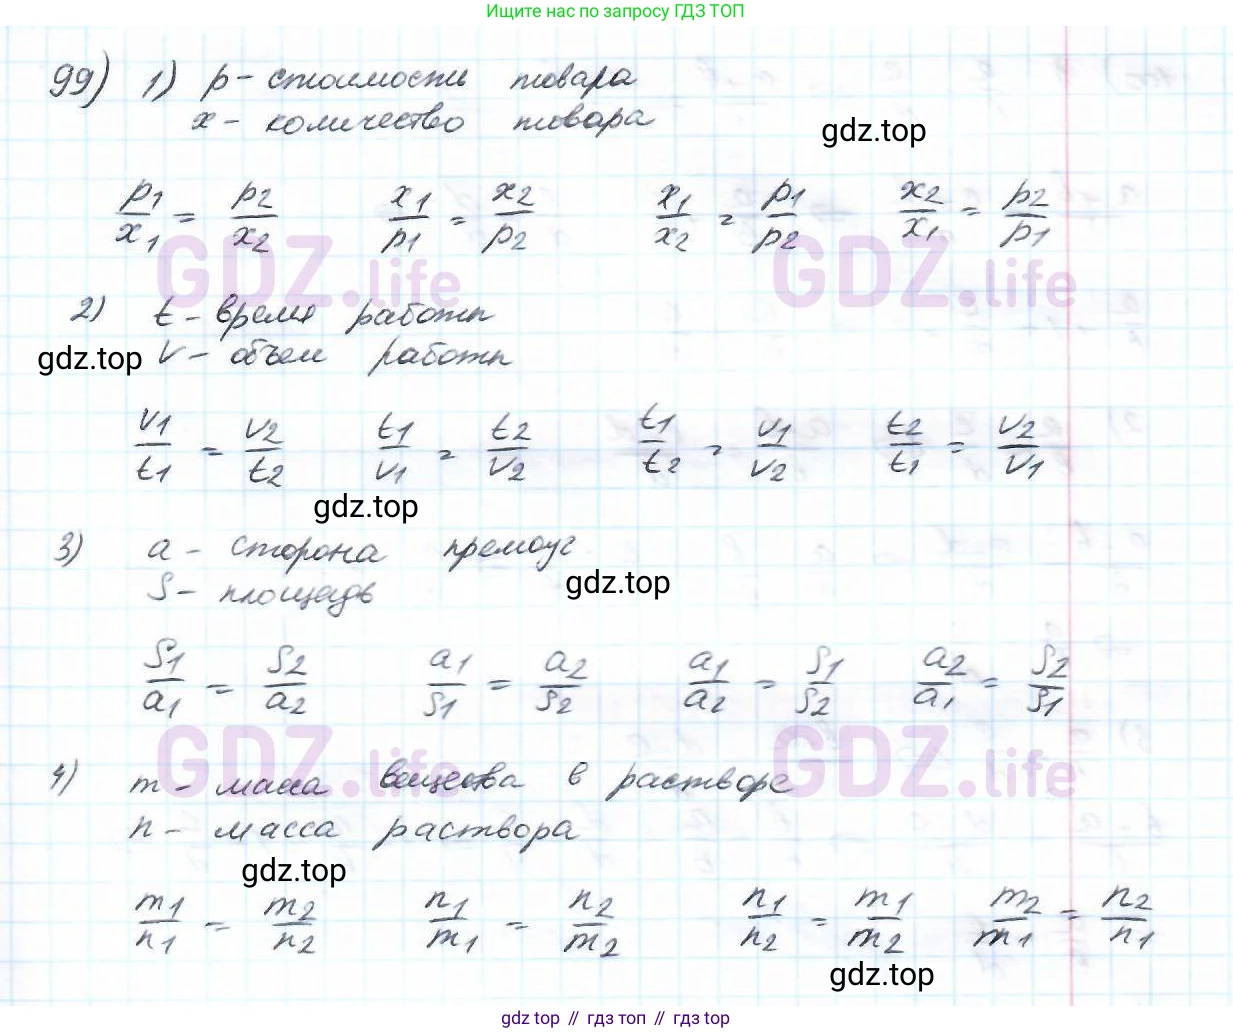 Ищите нас по запросу ГДЗ ТОП
99) 1) p - стоимость товара
x - количество товара
gdz.top
p1/x1 = p2/x2 x1/p1 = x2/p2 x1/x2 = p1/p2 x2/x1 = p2/p1
GDZ.life GDZ.life
2) t - время работы
gdz.top v - объем работы
v1/t1 = v2/t2 t1/v1 = t2/v2 t1/t2 = v1/v2 t2/t1 = v2/v1
gdz.top
3) a - сторона прямоуг.
S - площадь
gdz.top
S1/a1 = S2/a2 a1/S1 = a2/S2 a1/a2 = S1/S2 a2/a1 = S2/S1
GDZ.life GDZ.life
4) m - масса вещества в растворе
n - масса раствора
gdz.top
m1/n1 = m2/n2 n1/m1 = n2/m2 n1/n2 = m1/m2 m2/m1 = n2/n1
gdz.top
gdz top // гдз топ // gdz top